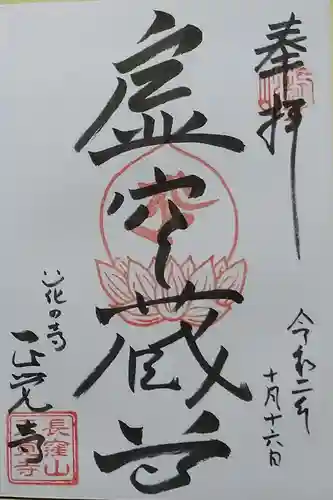 奉拝
令和二年
十月十六日
虚空蔵尊
花の寺
正覚寺
長窪山
正覚寺